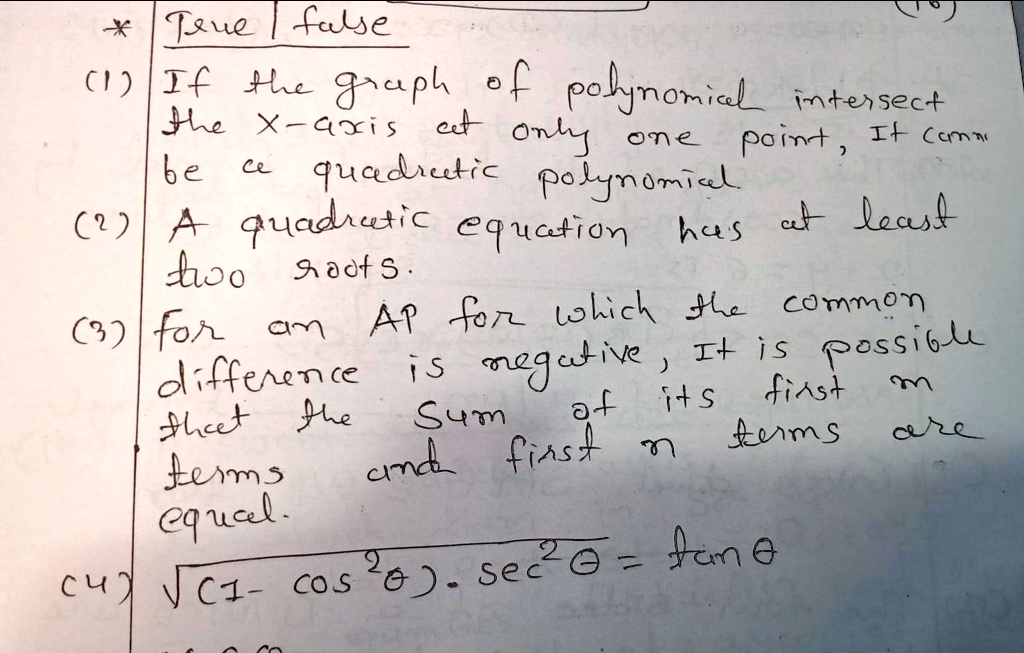 * True / false
(1) If the graph of polynomial intersect
the x-axis at only one point, It
be a quadratic polynomial
(2) A quadratic equation has at least
two roots.
(3) for an AP for which the common
difference is negative, It is possible
that the sum of its first m
terms and first n terms are
equal.
(4) √(1- cos²θ). sec²θ = tan θ